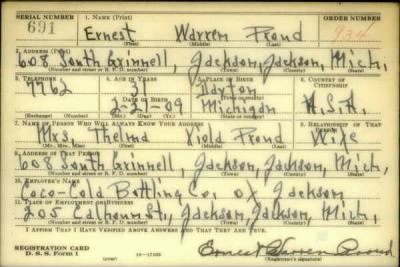 SERIAL NUMBER 1. NAME (Print) ORDER NUMBER
691 Ernest Warren Proud 934
(First) (Middle) (Last)
2. ADDRESS (Print)
608 South Grinnell, Jackson, Jackson, Mich.
(Number and street or R. F. D. number) (Town) (County) (State)
3. TELEPHONE 4. AGE IN YEARS 5. PLACE OF BIRTH 6. COUNTRY OF CITIZENSHIP
7762 31 Dayton
DATE OF BIRTH (Town or county)
2-21-09 Michigan U.S.A.
(Exchange) (Number) (Mo.) (Day) (Yr.) (State or country)
7. NAME OF PERSON WHO WILL ALWAYS KNOW YOUR ADDRESS 8. RELATIONSHIP OF THAT PERSON
Mrs. Thelma Viola Proud Wife
(Mr., Mrs., Miss) (First) (Middle) (Last)
9. ADDRESS OF THAT PERSON
608 South Grinnell, Jackson, Jackson, Mich.
(Number and street or R. F. D. number) (Town) (County) (State)
10. EMPLOYER'S NAME
Coco-Cola Bottling Co. of Jackson
11. PLACE OF EMPLOYMENT OR BUSINESS
205 Calhoun St., Jackson, Jackson, Mich.
(Number and street or R. F. D. number) (Town) (County) (State)
I AFFIRM THAT I HAVE VERIFIED ABOVE ANSWERS AND THAT THEY ARE TRUE.
REGISTRATION CARD
D. S. S. Form 1 (over) Ernest Warren Proud
(Registrant's signature)